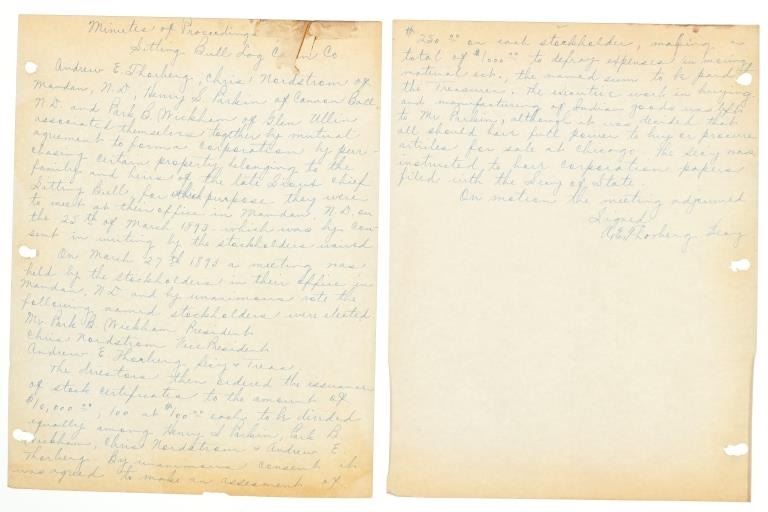 Minutes of Proceedings
Sitting Bull Log Cabin Co.
Andrew E. Thorberg, Chris Nordstrom of
Mandan, N.D. Henry S. Parkin of Cannon Ball
N.D. and Park B. Wickham of Glen Ullin
associated themselves together by mutual
agreement to form a corporation by pur-
chasing certain property belonging to the
family and heirs of the late Sioux chief
Sitting Bull, for which purpose they were
to meet at their office in Mandan, N.D. on
the 25th of March 1893 which was by con-
sent in writing by the stockholders waived
On March 27th 1893 a meeting was
held by the stockholders in their office in
Mandan, N.D and by unanimous vote the
following named stockholders were elected
Mr. Park B. Wickham President
Chris Nordstrom Vice President
Andrew E Thorberg Secy & Treas.
The directors then ordered the issuance
of stock certificates to the amount of
$10,000 00, 100 at $100 00 each, to be divided
equally among Henry S Parkin, Park B.
Wickham, Chris Nordstrom & Andrew E.
Thorberg. By unanimous consent it
was agreed to make an assesment of
$250 00 on each stockholder, making a
total of $1000 00 to defray expenses in moving
material etc., the named sum to be paid to
the Treasurer. The executive work in buying
and manufacturing of Indian goods was left
to Mr Parkin, although it was decided that
all should have full power to buy or procure
articles for sale at Chicago. The Secy was
instructed to have corporation papers
filed with the Secy of State.
On motion the meeting adjourned
Signed
A.E. Thorberg Secy